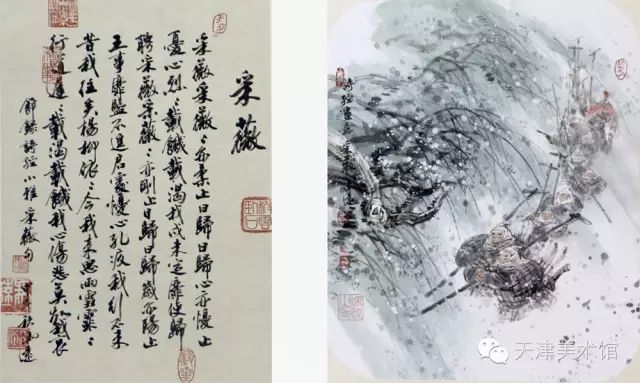 采薇
采薇采薇〻亦柔止曰歸曰歸心亦憂止
憂心烈〻載饑載渴我戍未定靡使歸
聘采薇采薇〻亦剛止曰歸曰歸歲亦陽止
王事靡盬不遑啟處憂心孔疚我行不來
昔我往矣楊柳依〻今我來思雨雪霏〻
行道遲〻載渴載饑我心傷悲莫知我哀
節錄詩經小雅采薇句
詩經畫意
天津美术馆